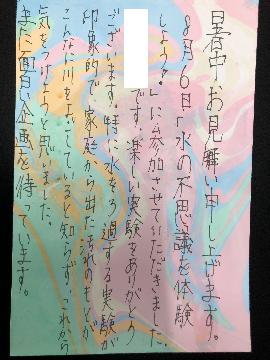 暑中お見舞い申し上げます。
8月6日「水の不思議を体験
しよう!」に参加させていただきました
です。楽しい実験をありがとう
ございます。特に水をろ過する実験が
印象的で、家庭から出た汚れのもとが
こんなに川をよごしていると知らず、これから
気をつけようと思いました。
また面白い企画を待っています。